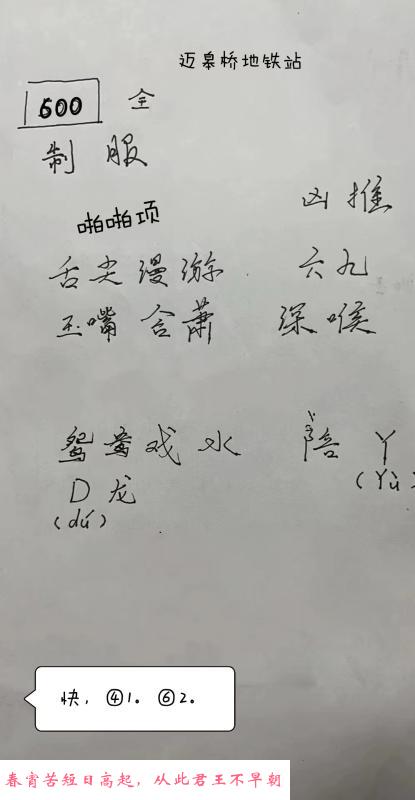 迈皋桥地铁站
600 全
制服
啪啪项
凶推
舌尖漫游 六九
玉嘴含萧 深喉
鸳鸯戏水 陪 丫
(Yù
D 龙
(dú)
快，④1。⑥2。
春宵苦短日高起，从此君王不早朝